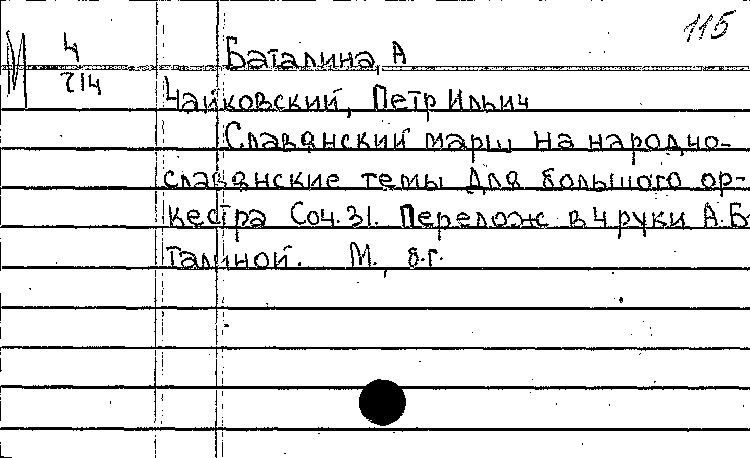 115
М 4 Баталина, А
214
Чайковский, Петр Ильич
Славянский марш на народно-
славянские темы для большого ор-
кестра Соч. 31. Перелож в 4 руки А. Ба
талиной. М., б.г.